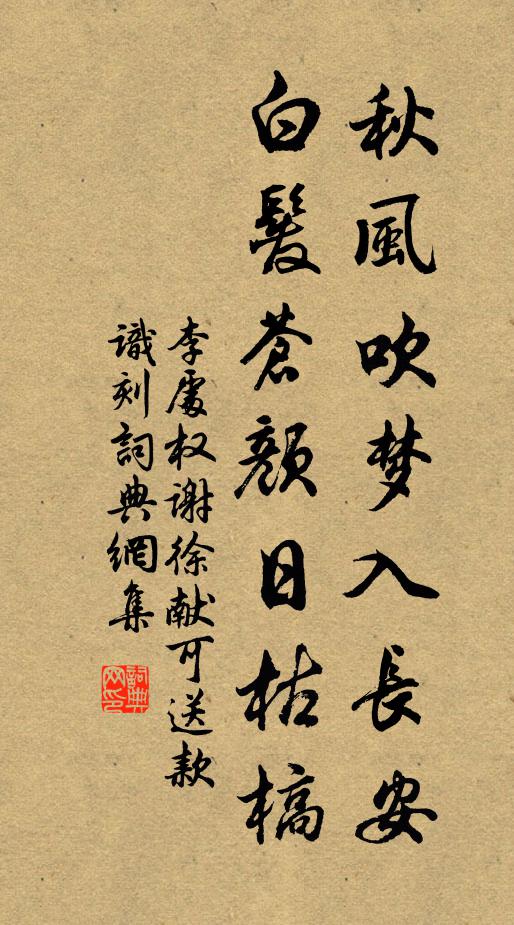 秋風吹梦入長安
白髮蒼顔日枯槁
李處权谢徐献可送款
識刻詞典網集
詞典网印